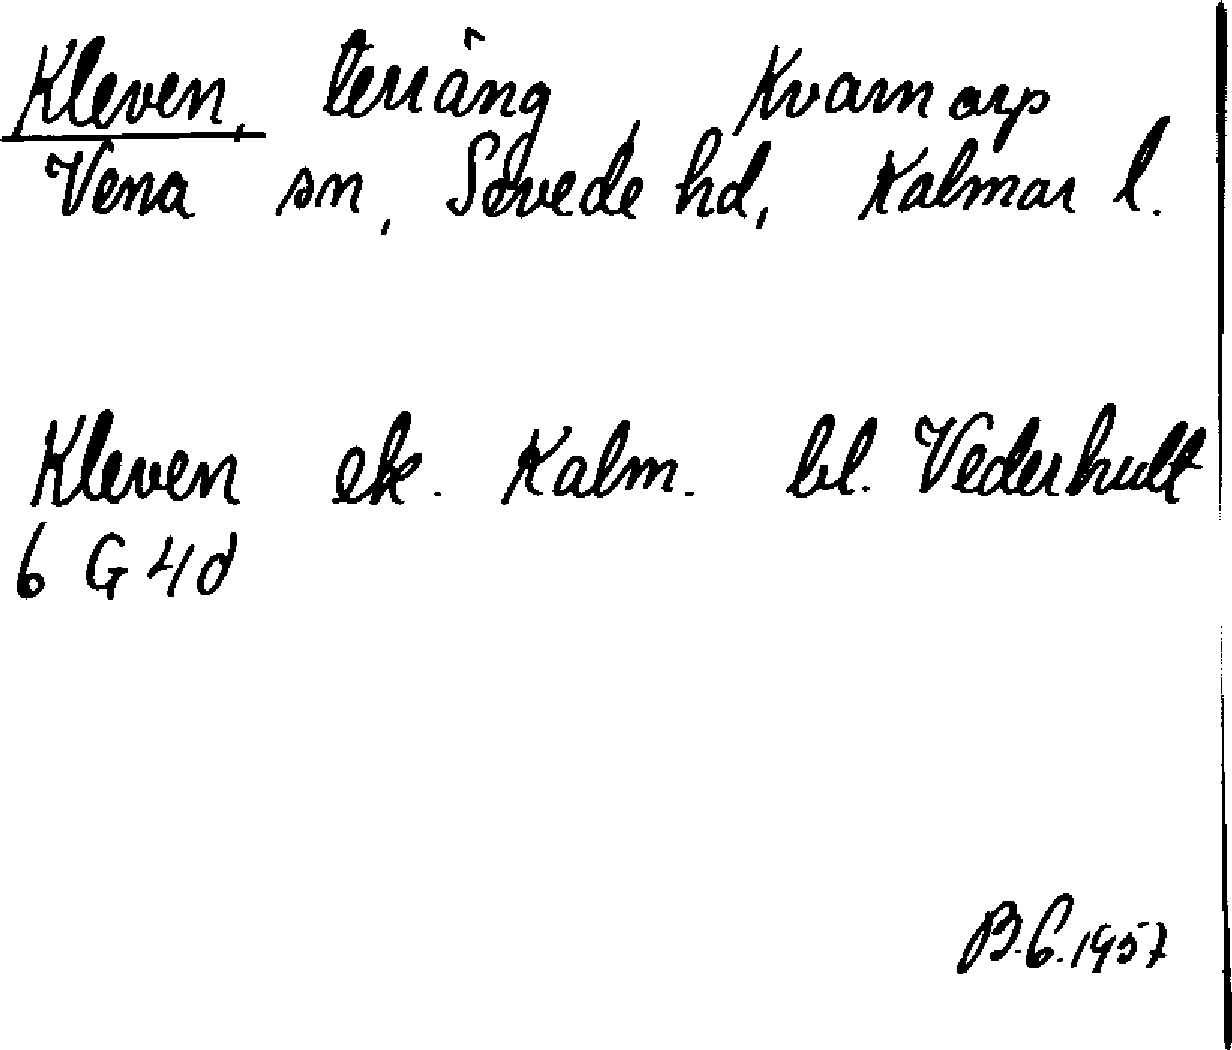 Kleven, terräng, Kvarnarp
Vena sn, Sevede hd, Kalmar l.
Kleven ek. Kalm. bl. Vederhult
6 G 4d
B.G.1957